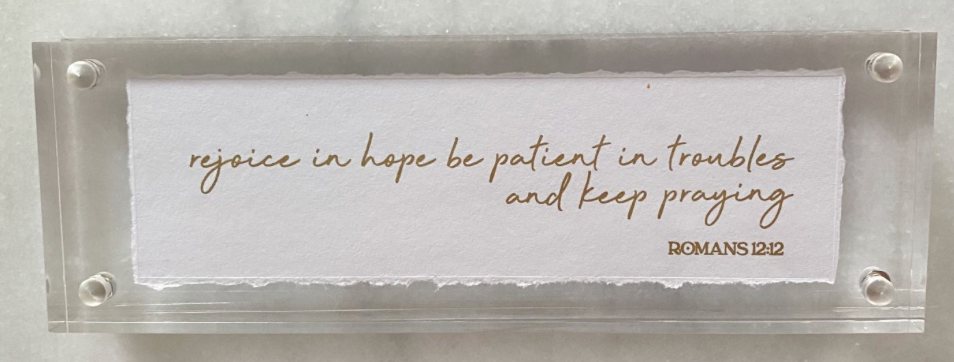 rejoice in hope be patient in troubles
and keep praying
ROMANS 12:12